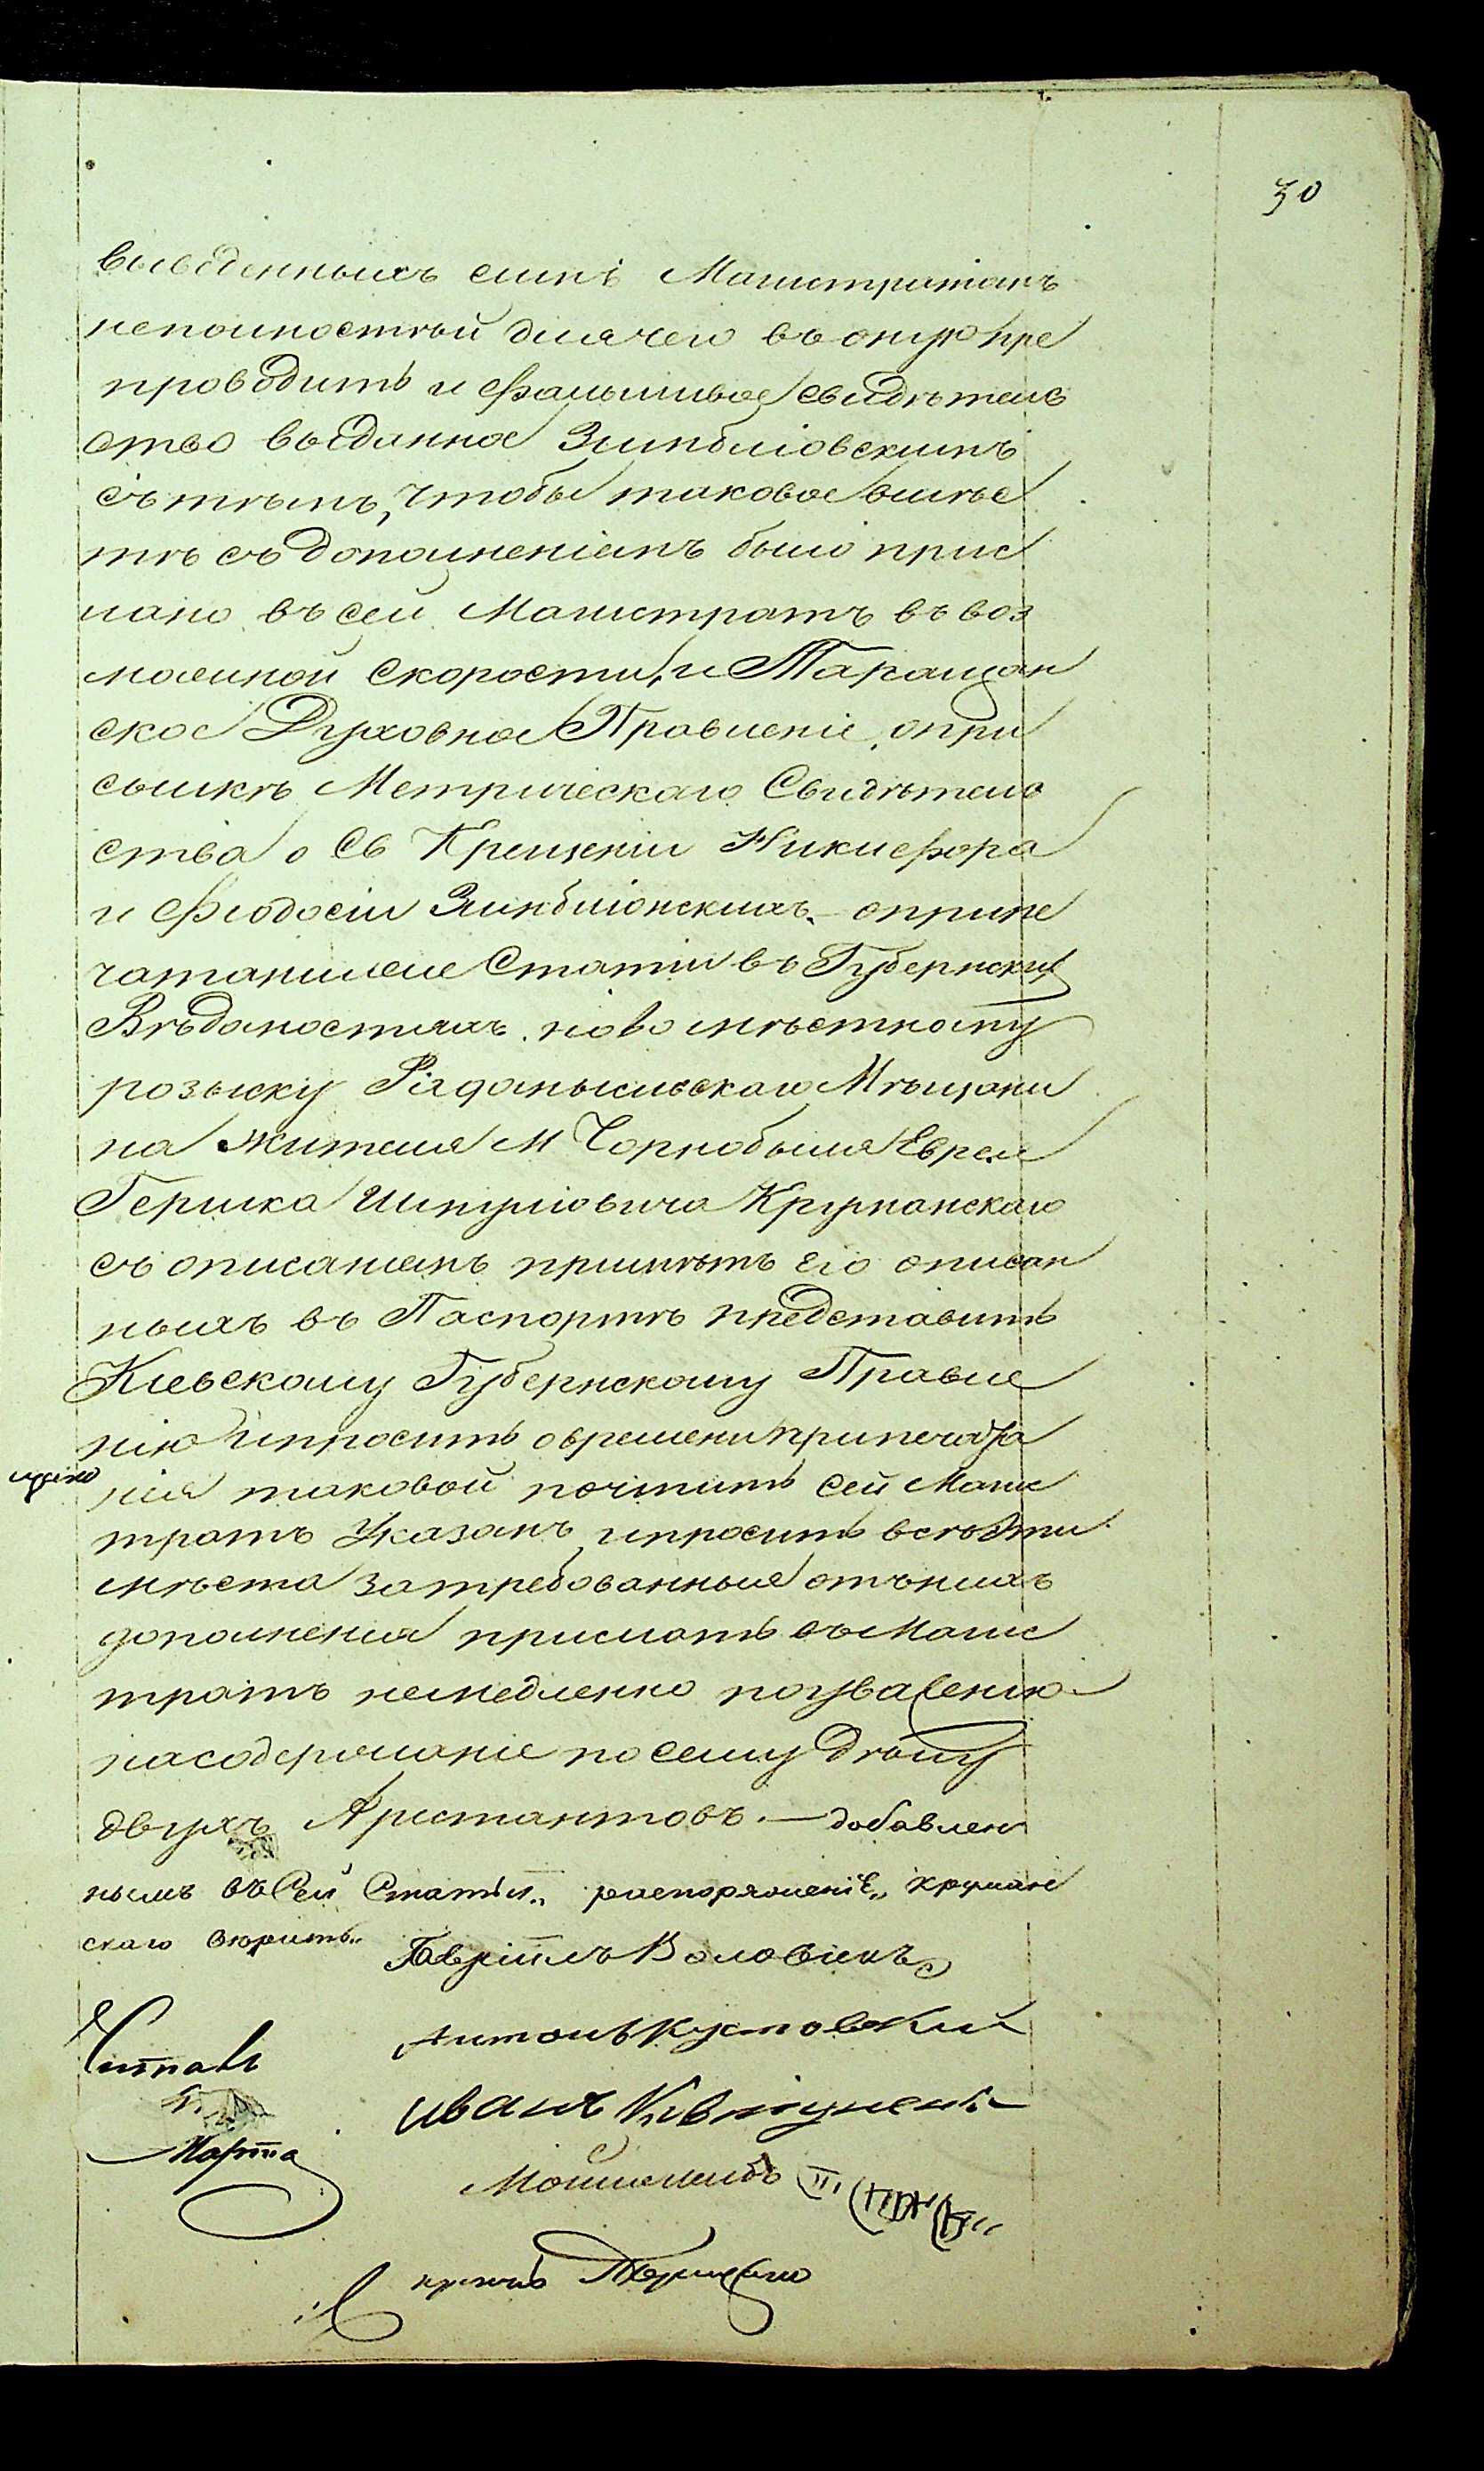 30
выведенныхъ симъ Магистратомъ
неполностей для чего въ оную пре
проводить и фальшивое свидѣтель
ство выданное Зимбліовскимъ
съ тѣмъ, чтобы таковое вмѣс
тѣ съ дополненіемъ было прис
лано въ сей Магистратъ въ воз
можной скорости, и Таращан
ское Духовное Правленіе, о при
сылкѣ Метрическаго Свидѣтель
ства о Св Крещеніи Никифора
и Феодосіи Зимбліонскихъ, о припе
чатаніи Статіи въ Губернскихъ
Вѣдомостяхъ повомѣстному
розыску Радомысльскаго Мѣщани
на жителя М Чорнобыля Еврея
Гершка Шмуліовича Круманскаго
съ описаніемъ примѣтъ его описан
ныхъ въ Паспортѣ представить
Кіевскому Губернскому Правле
нію и просить о времени припечата
нія таковой почтить сей Магис
тратъ Указомъ, и просить всѣ эти
мѣста затребованные отъ нихъ
дополненія прислать въ Магис
тратъ немедленно по уваженію
на содержаніе по сему Дѣлу
двухъ Арестантовъ. — добавлен
нымъ въ Сей Статьи„ распоряженіе„ Круман
скаго вѣрить„
Гавріилъ Воловикъ
Антонъ Кутовскій
Читалъ
Иванъ
Марта